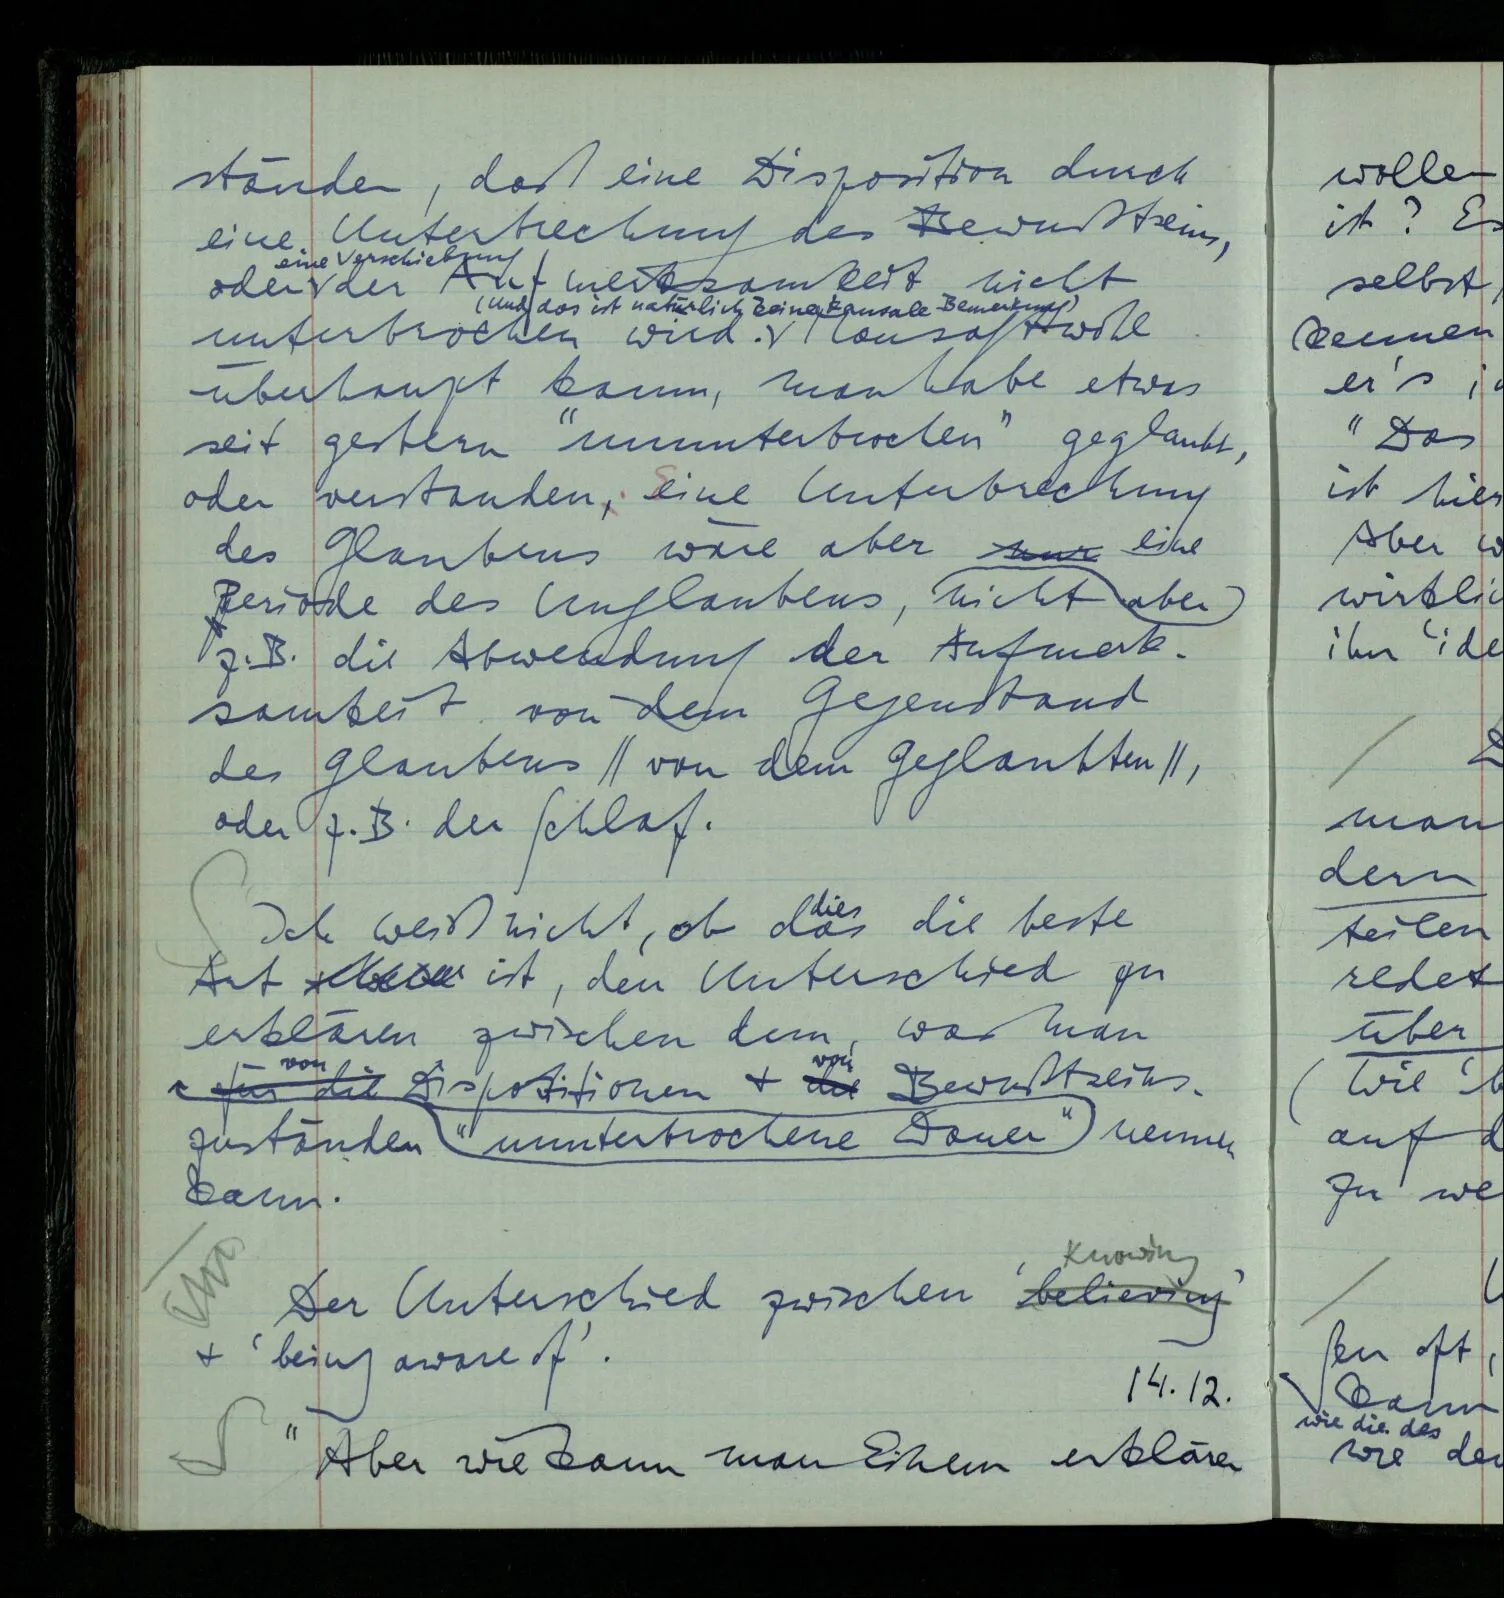 ständen, daß eine Disposition durch
eine Unterbrechung des Bewußtseins,
eine Verschiebung
oder der Aufmerksamkeit nicht
(und das ist natürlich keine kausale Bemerkung)
unterbrochen wird. Man sagt wohl
überhaupt kaum, man habe etwas
seit gestern "ununterbrochen" geglaubt,
oder verstanden; eine Unterbrechung
des Glaubens wäre aber nur eine
Periode des Unglaubens, nicht aber
z.B. die Abwendung der Aufmerk-
samkeit von dem Gegenstand
des Glaubens // von dem Geglaubten //,
oder z.B. der Schlaf.
dies
Ich weiß nicht, ob das die beste
Art ist, den Unterschied zu
erklären zwischen dem, was man
von von
für die Dispositionen + die Bewußtseins-
zuständen "ununterbrochene Dauer" nennen
kann.
Knowing
Der Unterschied zwischen 'believing'
+ 'being aware of'.
14.12.
"Aber wie kann man Einem erklären
wollen
ist? Es
selbst,
kennen
er's
"Das
ist hier
Aber w
wirklic
ihn 'ide
D
man
dern
teilen
redet
über
(wie 'b
auf d
zu we
ßen oft,
kann
wie die des
wie der